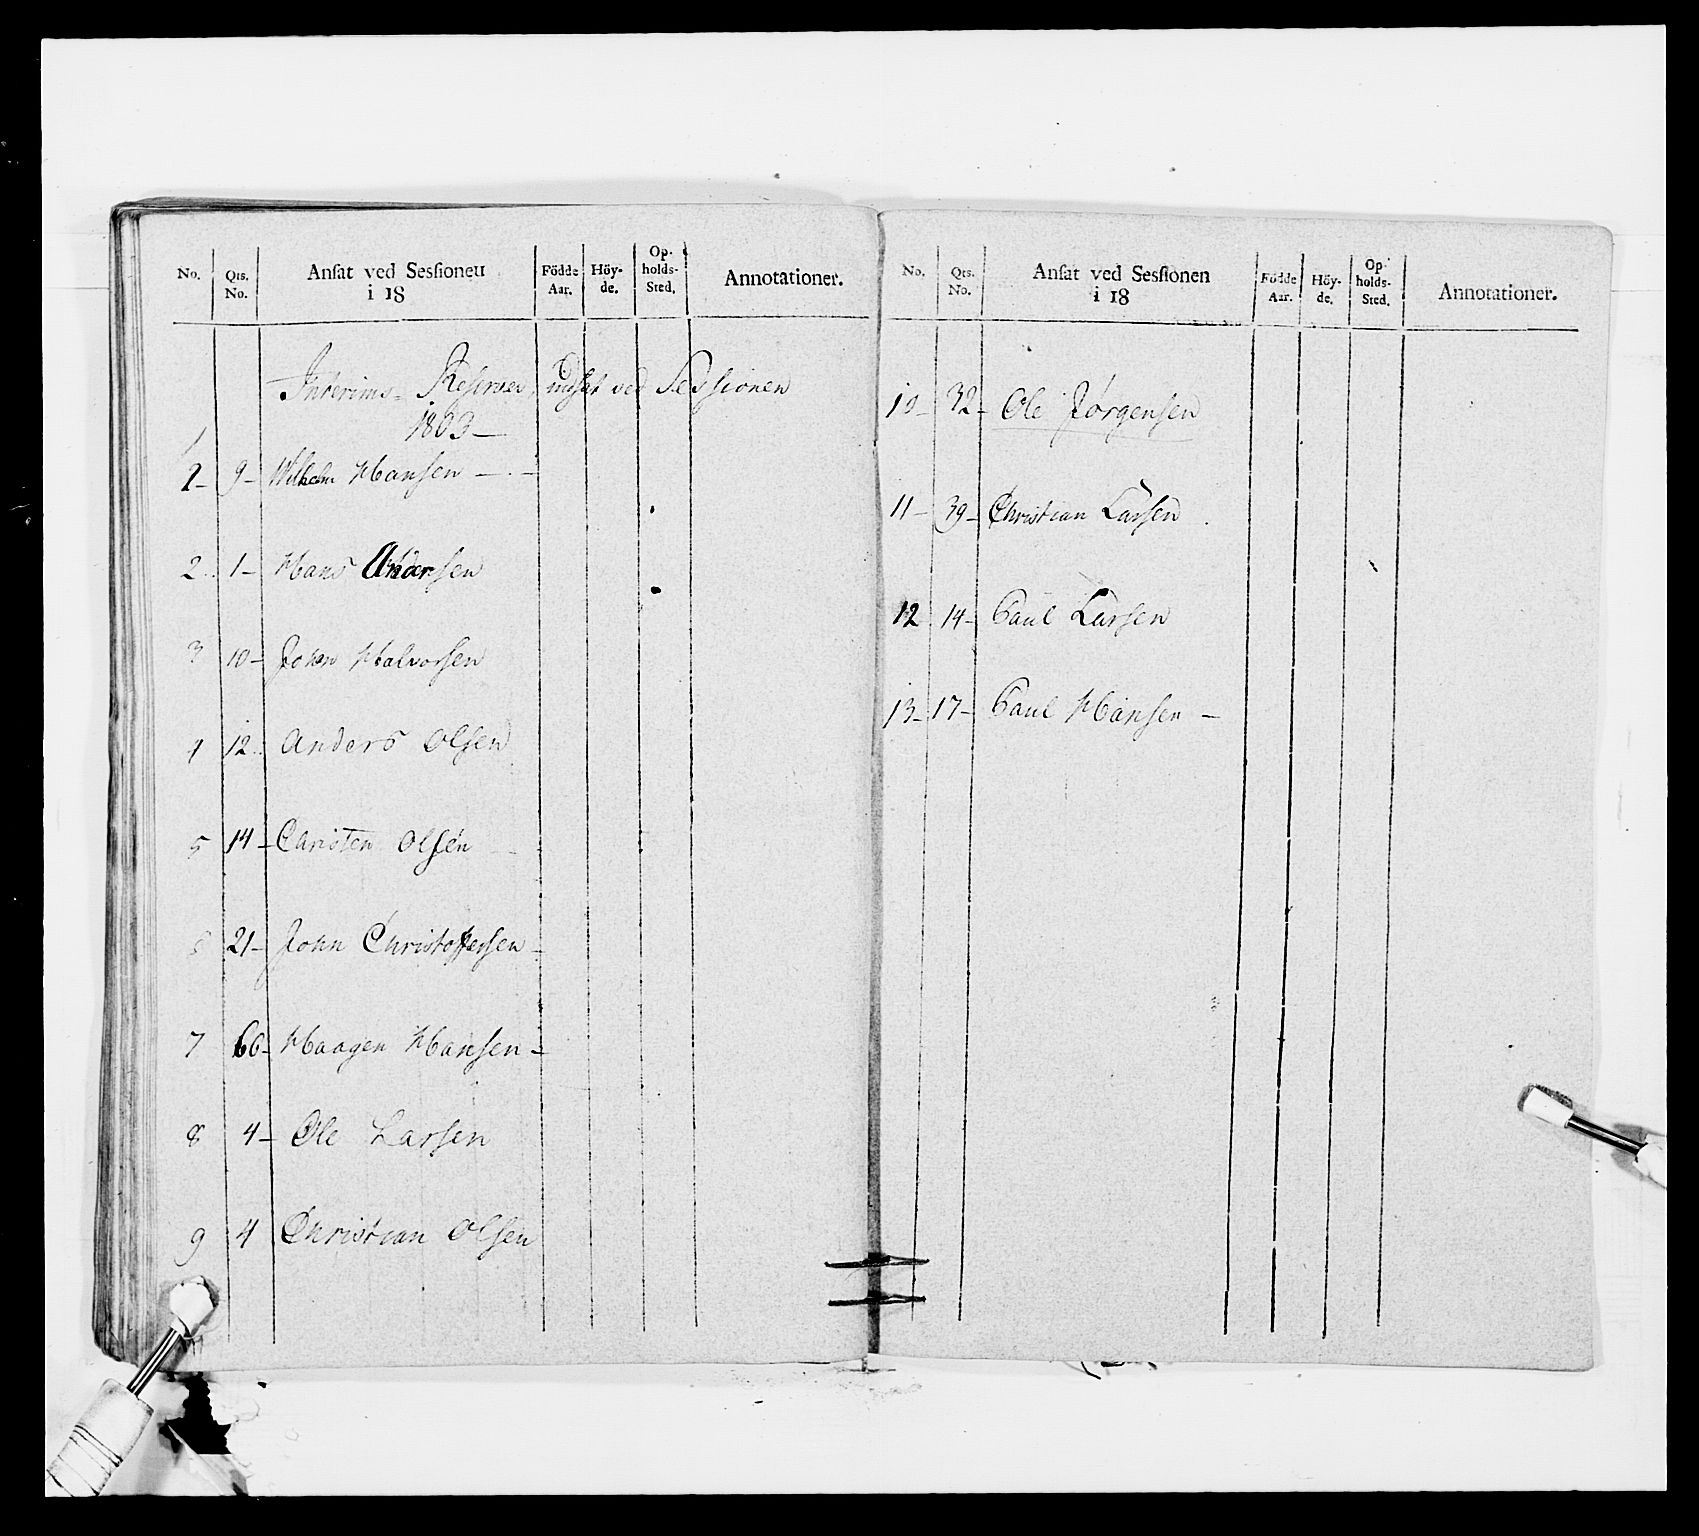 No. Qts. No. Ansat ved Sessionen i 18 Födde Aar. Höyde. Opholds-Sted. Annotationer.
Interims- Reserver, udsat ved Sessionen
1803 —
1 - 9 - Wilhelm Hansen —
2 1 - Hans Andersen
3 10 - John Halvorsen
4 12 Anders Olsen
5 14 - Christen Olsen
6 21 - John Christoffersen -
7 66 - Haagen Hansen -
8 4 - Ole Larsen
9 4 Christian Olsen
No. Qts. No. Ansat ved Sessionen i 18 Födde Aar. Höyde. Opholds-Sted. Annotationer.
10 - 32 - Ole Jörgensen
11 - 39 - Christian Larsen
12 14 - Paul Larsen
13 - 17 - Paul Hansen —